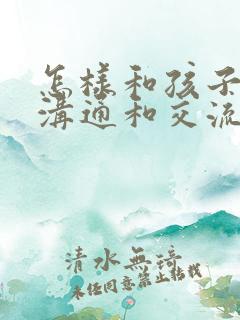 怎樣和孩子
溝通和交流
清水無琦
未經同意禁止轉載